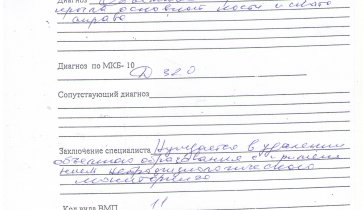 Диагноз
крыла основной кости и ската
справа
Диагноз по МКБ- 10 D 32.0
Сопутствующий диагноз
Заключение специалиста Нуждается в удалении
объемного образования с примене
нием нейрофизиологического
мониторинга
Код вида ВМП 11